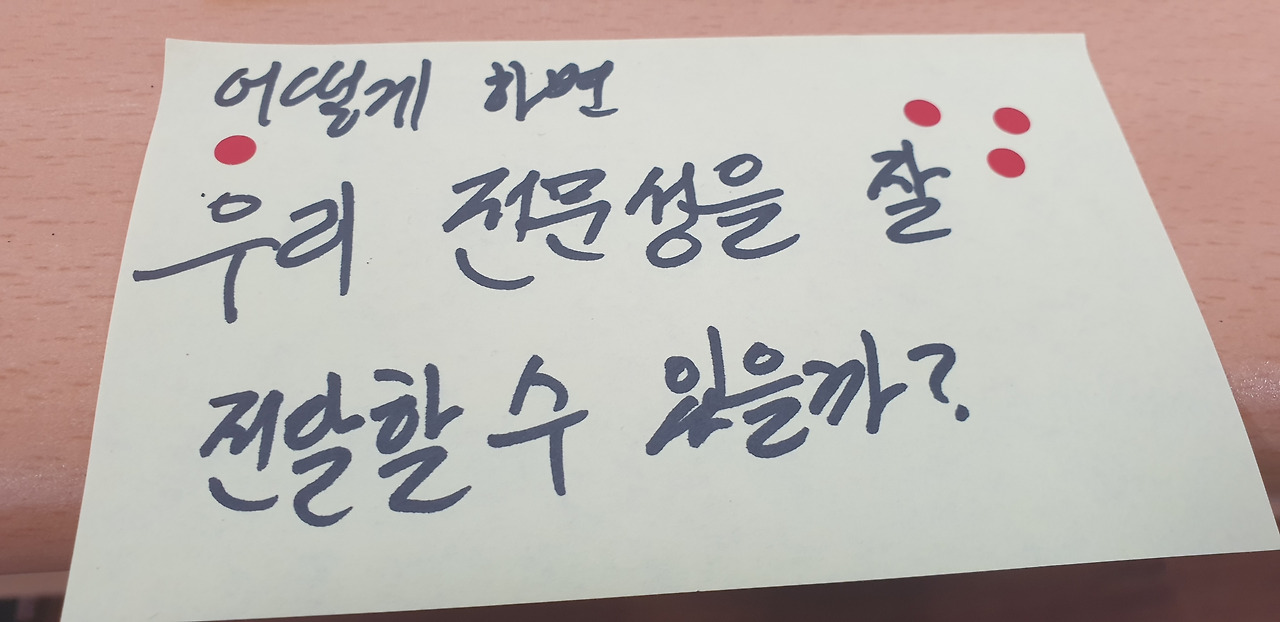 어떻게 하면
우리 전문성을 잘
전달할 수 있을까?